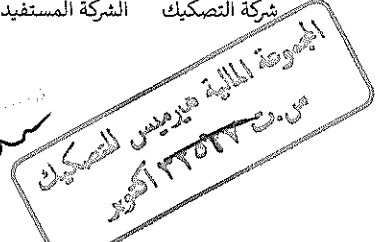 شركة التصكيك الشركة المستفيد
المجموعة المالية هيرميس للتصكيك
س.ت ٢٢٥٣٧ أكتوبر